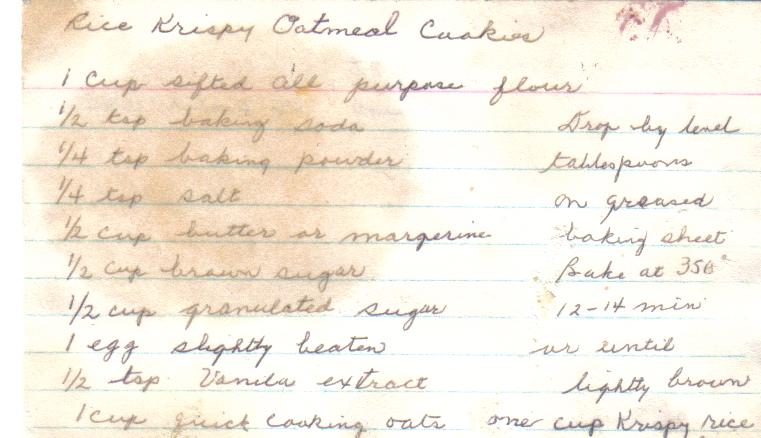 Rice Krispy Oatmeal Cookies
1 cup sifted all purpose flour
1/2 tsp baking soda
1/4 tsp baking powder
1/4 tsp salt
1/2 cup butter or margerine
1/2 cup brown sugar
1/2 cup granulated sugar
1 egg slightly beaten
1/2 tsp Vanila extract
1 cup quick cooking oats one cup Krispy rice
Drop by level
tablespoons
on greased
baking sheet
Bake at 350°
12-14 min
or until
lightly brown